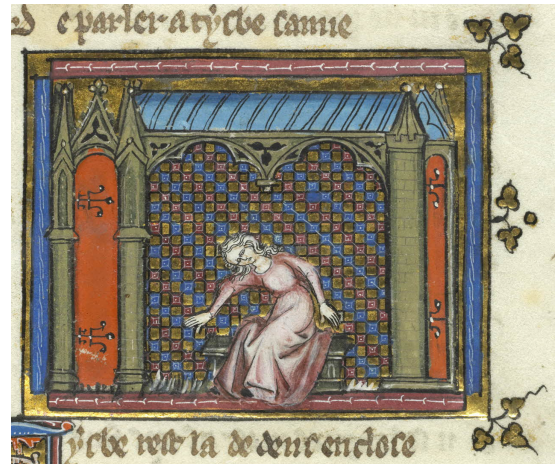 e parler a tysbe samie
ysbe rest la dedenc enclose